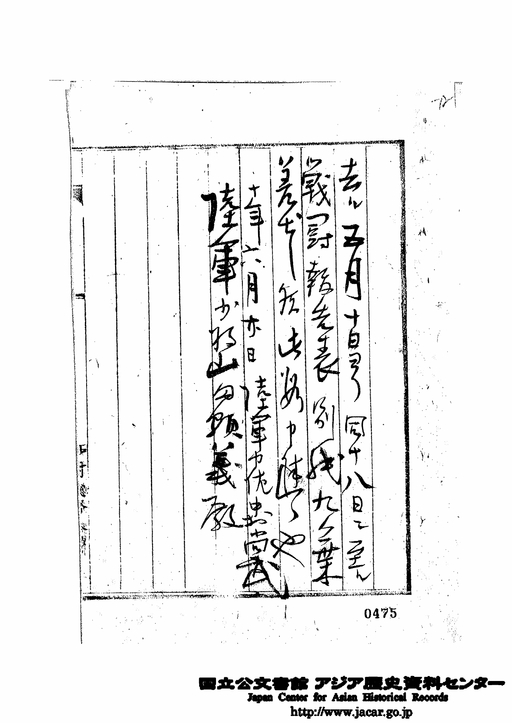 去ル五月十日ヨリ同十八日ニ至ル
戦闘報告表別紙九葉
差出候此段申進候也
十年六月廿日 陸軍中佐 尚武
陸軍少将山 顕義殿
0475
国立公文書館 アジア歴史資料センター
Japan Center for Asian Historical Records
http://www.jacar.go.jp